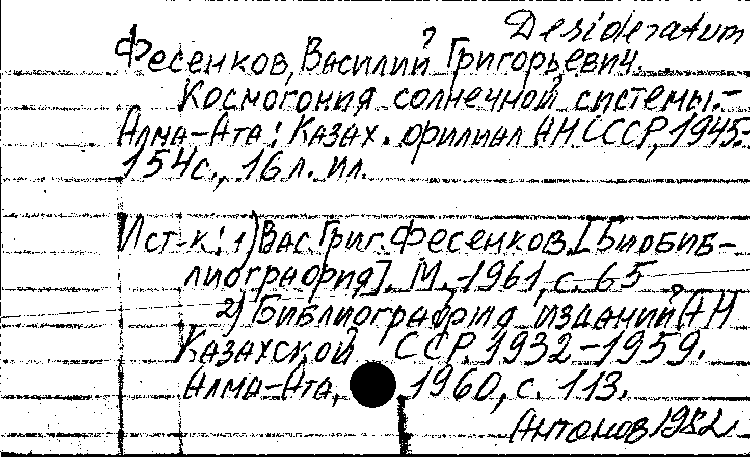 Desideratum
Фесенков, Василий Григорьевич.
Космогония солнечной системы.-
Алма-Ата: Казах. филиал АН СССР, 1945.
154 с., 16 л. ил.
Ист-к: 1) Вас. Григ. Фесенков. [Биобиб-
лиография]. М., 1961, с. 65
2) Библиография изданий АН
Казахской ССР. 1932-1959.
Алма-Ата, 1960, с. 113.
Антонов 1982